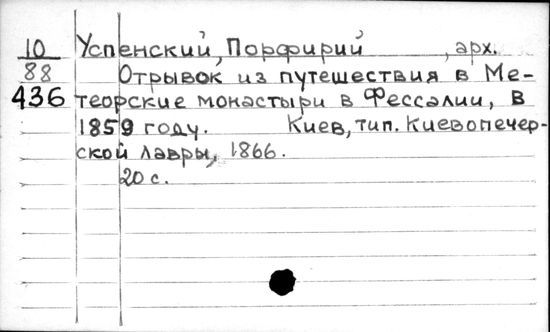 10 Успенский, Порфирий , арх.
88 Отрывок из путешествия в Ме-
436 теорские монастыри в Фессалии, в
1859 году. Киев, тип. Киевопечер-
ской лавры, 1866.
20 с.